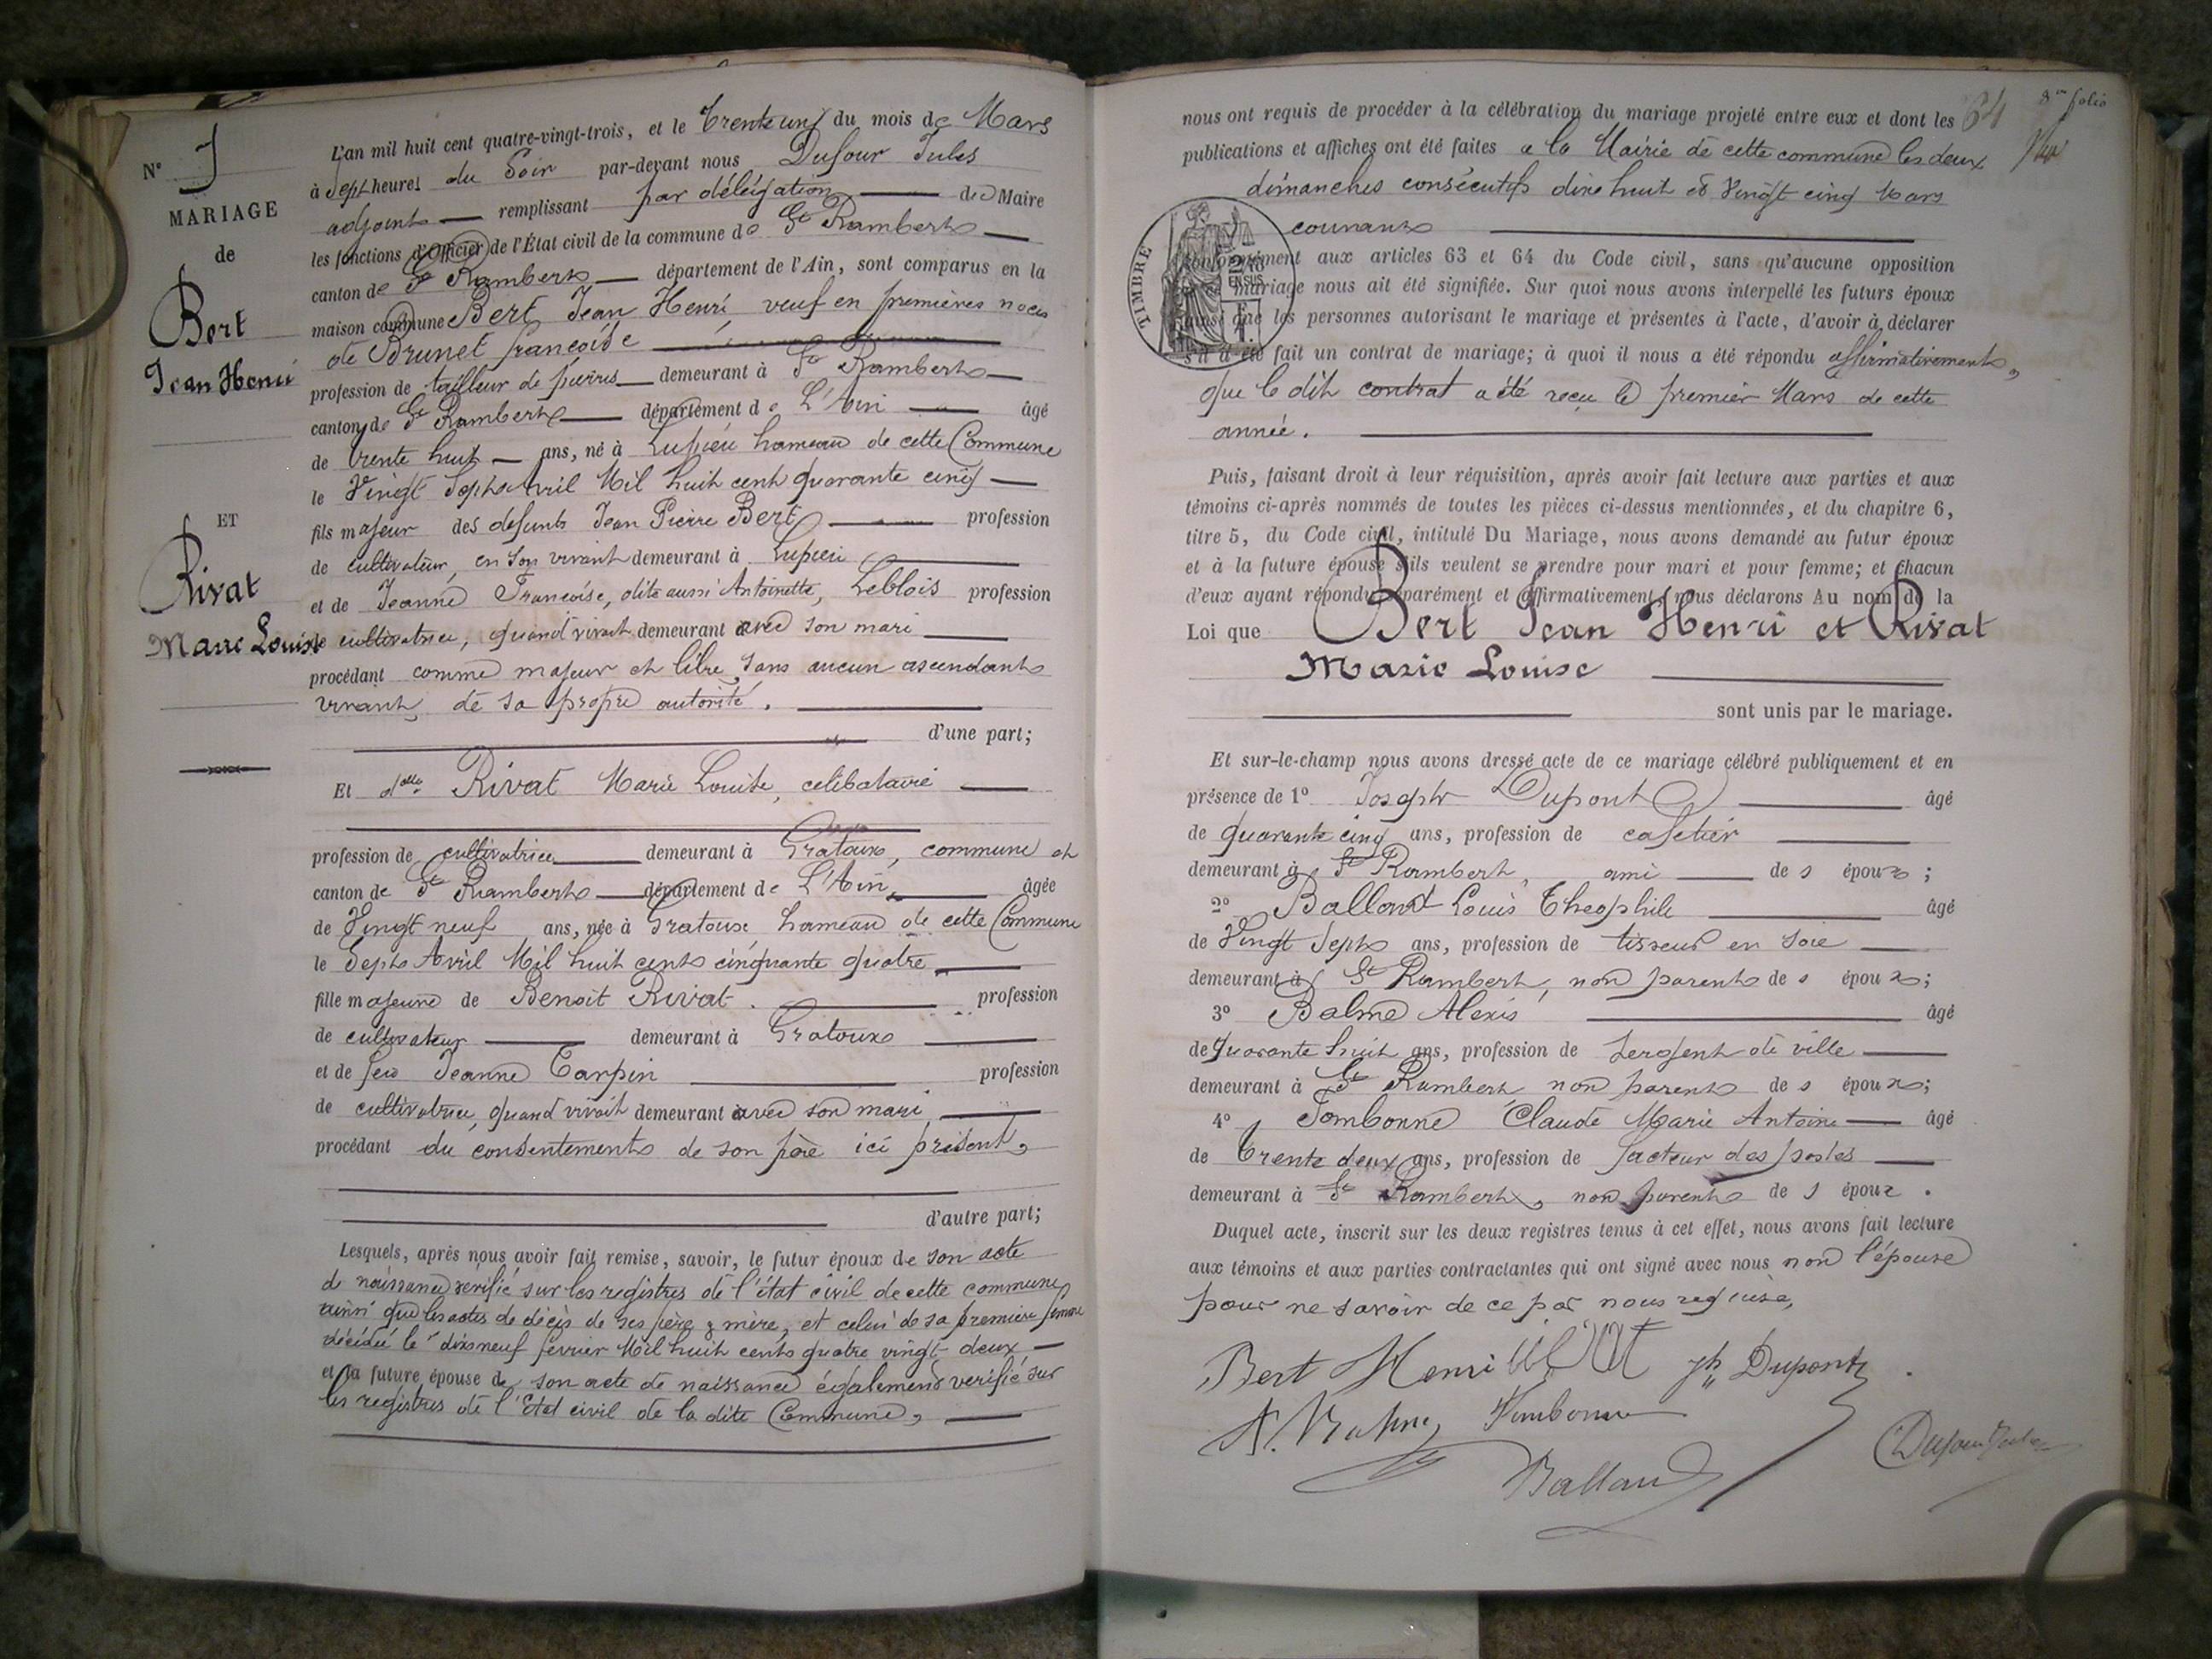 N°
MARIAGE
de
Bert
Jean Henri
ET
Rivat
Marie Louise
L'an mil huit cent quatre-vingt-trois, et le Trente un du mois de Mars
à Sept heures du Soir par-devant nous Dufour Jules
adjoint remplissant par délégation de Maire
les fonctions d'Officier de l'État civil de la commune de St Rambert
canton de St Rambert département de l'Ain, sont comparus en la
maison commune Bert Jean Henri veuf en premières noces
de Brunet françoise
profession de tailleur de pierres demeurant à St Rambert
canton de St Rambert département de L'Ain âgé
de trente huit ans, né à Lupieu hameau de cette Commune
le Vingt Sept Avril Mil huit cent quarante cinq
fils majeur des défunts Jean Pierre Bert profession
de cultivateur, en son vivant demeurant à Lupieu
et de Jeanne Françoise, dite aussi Antoinette, Leblois profession
de cultivatrice, quand vivait demeurant avec son mari
procédant comme majeur et libre, sans aucun ascendant
vivant, de sa propre autorité.
d'une part;
Et dlle Rivat Marie Louise, célibataire
profession de cultivatrice demeurant à Gratoux, commune et
canton de St Rambert département de L'Ain, âgée
de Vingt neuf ans, née à Gratoux hameau de cette Commune
le Sept Avril Mil huit cent cinquante quatre
fille majeure de Benoit Rivat profession
de cultivateur demeurant à Gratoux
et de feu Jeanne Tarpin profession
de cultivatrice, quand vivait demeurant avec son mari
procédant du consentement de son père ici présent,
d'autre part;
Lesquels, après nous avoir fait remise, savoir, le futur époux de son acte
de naissance vérifié sur les registres de l'état civil de cette commune,
ainsi que les actes de décès de ses père & mère, et celui de sa première femme
décédée le dix neuf février Mil huit cent quatre vingt deux
et la future épouse de son acte de naissance également vérifié sur
les registres de l'Etat civil de la dite Commune,
8me folio
64
nous ont requis de procéder à la célébration du mariage projeté entre eux et dont les
publications et affiches ont été faites a la Mairie de cette commune les deux
dimanches consécutifs dix huit et Vingt cinq Mars
courant
TIMBRE
conformément aux articles 63 et 64 du Code civil, sans qu'aucune opposition
mariage nous ait été signifiée. Sur quoi nous avons interpellé les futurs époux
ainsi que les personnes autorisant le mariage et présentes à l'acte, d'avoir à déclarer
s'il a été fait un contrat de mariage; à quoi il nous a été répondu affirmativement,
que le dit contrat a été reçu le premier Mars de cette
année.
Puis, faisant droit à leur réquisition, après avoir fait lecture aux parties et aux
témoins ci-après nommés de toutes les pièces ci-dessus mentionnées, et du chapitre 6,
titre 5, du Code civil, intitulé Du Mariage, nous avons demandé au futur époux
et à la future épouse s'ils veulent se prendre pour mari et pour femme; et chacun
d'eux ayant répondu séparément et affirmativement, nous déclarons Au nom de la
Loi que Bert Jean Henri et Rivat
Marie Louise
sont unis par le mariage.
Et sur-le-champ nous avons dressé acte de ce mariage célébré publiquement et en
présence de 1° Joseph Dupont âgé
de quarante cinq ans, profession de cafetier
demeurant à St Rambert, ami de s époux;
2° Balland Louis Théophile âgé
de Vingt Sept ans, profession de tisseur en soie
demeurant à St Rambert, non parent de s époux;
3° Balme Alexis âgé
de quarante huit ans, profession de Sergent de ville
demeurant à St Rambert non parent de s époux;
4° Tombonne Claude Marie Antoine âgé
de trente deux ans, profession de facteur des postes
demeurant à St Rambert, non parent de s époux.
Duquel acte, inscrit sur les deux registres tenus à cet effet, nous avons fait lecture
aux témoins et aux parties contractantes qui ont signé avec nous non l'épouse
pour ne savoir de ce par nous requise,
Bert Henri Jh Dupont
A. Balme Tombonne
Balland
Dufour Jules